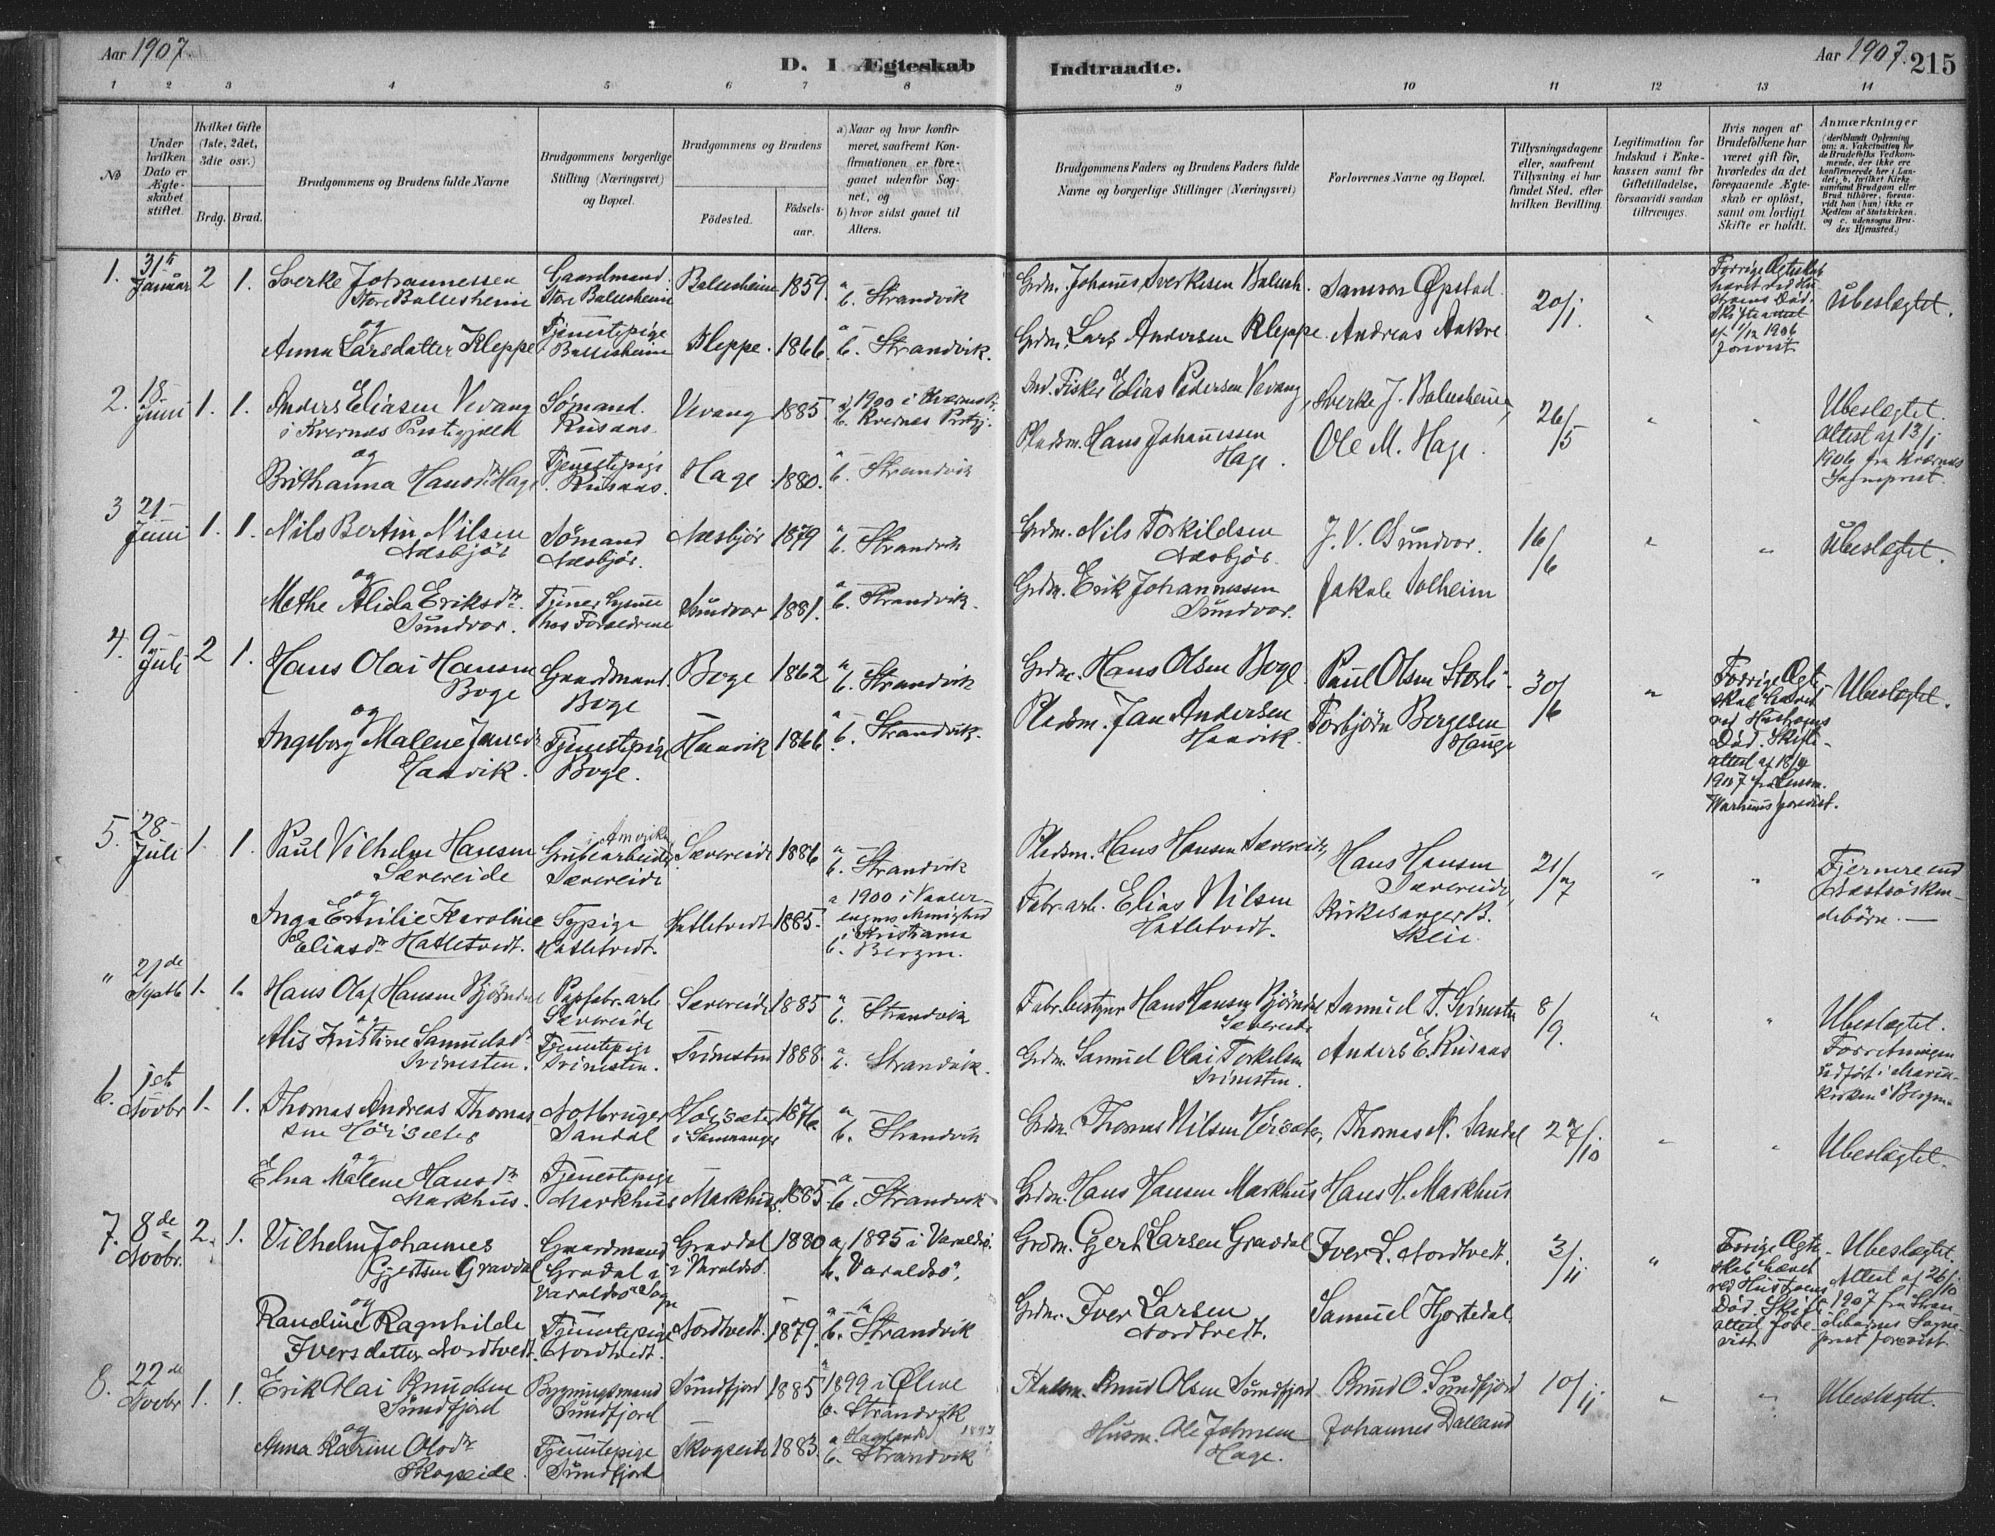 Aar 1907.
D. I Ægteskab Indtraadte.
Aar 1907. 215
1 2 3 4 5 6 7 8 9 10 11 12 13 14
No
Under hvilken Dato er Ægteskabet stiftet.
Hvilket Gifte (1ste, 2det, 3die osv.)
Brdg. Brud.
Brudgommens og Brudens fulde Navne
Brudgommens borgerlige Stilling (Næringsvei) og Bopæl.
Brudgommens og Brudens
Födested.
Födselsaar.
a) Naar og hvor konfirmeret, saafremt Konfirmationen er foregaaet udenfor Sognet, og
b) hvor sidst gaaet til Alters.
Brudgommens Faders og Brudens Faders fulde Navne og borgerlige Stillinger (Næringsvei)
Forlovernes Navne og Bopæl.
Tillysningsdagene eller, saafremt Tillysning ei har fundet Sted, efter hvilken Bevilling.
Legitimation for Indskud i Enkekassen samt for Giftetilladelse, forsaavidt saadan tiltrænges.
Hvis nogen af Brudefolkene har været gift för, hvorledes da det foregaaende Ægteskab er oplöst, samt om lovligt Skifte er holdt.
Anmærkninger
(deriblandt Oplysning om: a. Vaktination for de Brudefolks Vedkommende, der ikke ere konfirmerede her i Landet; b. hvilket Kirkesamfund Brudgom eller Brud tilhörer, forsaavidt han (hun) ikke er Medlem af Statskirken, og c. udensogns Brudes Hjemsted.)
1. 31te Januar 2 1. Sverke Johannessen Store Ballesheim
Gaardmand Store Balesheim
Balesheim 1859. a — b. Strandvik
Grdm. Johanes Sverkesen Balesh. Samson Øpstad
20/1. " Forrige Ægteskab hævet ved Hustruens Död. Skifteattest af 1/12 1906 forevist.
Ubeslægtet.
og
Anna Larsdatter Kleppe
Tjenestepige Ballesheim
Kleppe. 1866. a — b. Strandvik.
Grdm. Lars Andersen Kleppe. Andreas Aakre
2. 18— Juni 1. 1. Anders Eliasen Vevang i Kvernes Prestegjæld
Sømand. Riisaas.
Vevang 1885 a) 1900 i Kværnes b. Kvernes Prstgj.
Ind. Fisker Elias Pedersen Vevang, Sverke J. Balesheim,
26/5 " " Ubeslægtet. Attest af 13/1 1906 fra Kværnes Sogneprest.
og
Brithanna Hansdtr Hage
Tjenestepige Riisaas.
Hage 1880. a — b. Strandvik
Pladsm. Hans Johannessen Hage. Ole M. Hage.
3 21— Juni 1. 1. Nils Bertin Nilsen Næsbjör
Sømand Næsbjör.
Næsbjör 1879 a — b. Strandvik
Grdm. Nils Torkildsen Næsbjör. J. V. Sundvor.
16/6 " " Ubeslægtet.
og
Methe Alida Eriksdtr. Sundvor.
Tjener hjemme hos Forældrene
Sundvor 1881. a — b. Strandvik.
Grdm. Erik Johannessen Sundvor. Jakob Solheim
4. 9— Juli 2 1. Hans Olai Hansen Boge
Gaardmand. Boge
Boge 1862 a — b. Strandvik
Grdm. Hans Olsen Boge Paul Olsen Storli
30/6 " Forrige Ægteskab hævet ved Hustruens Död. Skifteattest af 18/4 1907 fra forevist.
Ubeslægtet.
og
Ingeborg Malene Jansdtr Haavik.
Tjenestepige Boge.
Haavik 1866 a — b. Strandvik.
Pladsm. Jan Andersen Haavik. Torbjörn Bergesen Hauge
5. 28— Juli 1. 1. Paul Vilhelm Hansen Sævereide
i Amerika Grubearbeider Sævereide
Sævereide 1886 a — b. Strandvik
Pladsm. Hans Hansen Sævereide, Hans Hansen Sævereide,
21/7 " " Fjernere end Næstsöskendebörn. —
og
Inga Emilie Karoline Eliasdtr Hatletvedt.
Sypige Hatletvedt.
Hatletvedt 1885. a 1900 i Vaalerengens Menighed i Kristiania b. Bergen.
Fabr.arb. Elias Nilsen Hatletvedt. Kirkesanger B. Skeie.
" 21de Septb 1. 1. Hans Olaf Hansen Bjørndal
Papfabr.arb Sævereide
Sævereide 1885 a — b. Strandvik
Fabr.bestyrer Hans Hansen Bjørndal Sævereide Samuel T. Svinesten
8/9. " " Ubeslægtet. Forretningen udfört i Mariakirken i Bergen.
og
Alis Kristine Samuelsdtr Svinesten.
Tjenestepige Svinesten.
Svinesten 1888. a — b. Strandvik.
Grdm. Samuel Olai Torkelsen Svinesten. Anders E. Riisaas
6. 1ste Novbr 1. 1. Thomas Andreas Thomassen Höisæter
Notbruger Sandal
Höisæter i Samnanger 1876 a — b. Strandvik
Grdm. Thomas Nilsen Höisæter, Thomas N. Sandal
27/10 " " Ubeslægtet.
og
Elna Malene Hansdtr Markhus.
Tjenestepige Markhus
Markhus. 1885. a — b. Strandvik
Grdm. Hans Hansen Markhus Hans H. Markhus
7. 8de Novbr. 2. 1. Vilhelm Johannes Gjertsen Gravdal
Gaardmand Gravdal i Varaldsö Sogn
Gravdal i Varaldsö. 1880 a, 1895 i Varaldsö. b. Varaldsö.
Grdm. Gjert Larsen Gravdal Iver L. Nordtvedt.
3/11 " Forrige Ægteskab hævet ved Hustruens Död. Skifteattest forevist.
Ubeslægtet. Attest af 26/10 1907 fra Strandebarms Sogneprest forevist
og
Randine Ragnhilde Iversdatter Nordtvedt.
Tjenestepige Nordtvedt.
Nordtvedt. 1879. a — b. Strandvik
Grdm. Iver Larsen Nordtvedt. Samuel Hjortedal
8. 22de Novbr 1. 1. Erik Olai Knudsen Sundfjord
Bygningsmand Sundfjord
Sundfjord 1885 a 1899 i Ølve b. Strandvik
Knud Olsen Sundfjord Knud O. Sundfjord
10/11 " " Ubeslægtet.
og
Anna Katrine Olsdtr Skogseide.
Tjenestepige Sundfjord
Skogseide 1883. a 1897 b. Strandvik
Husm. Ole Johnsen Hage. Johannes Dalland